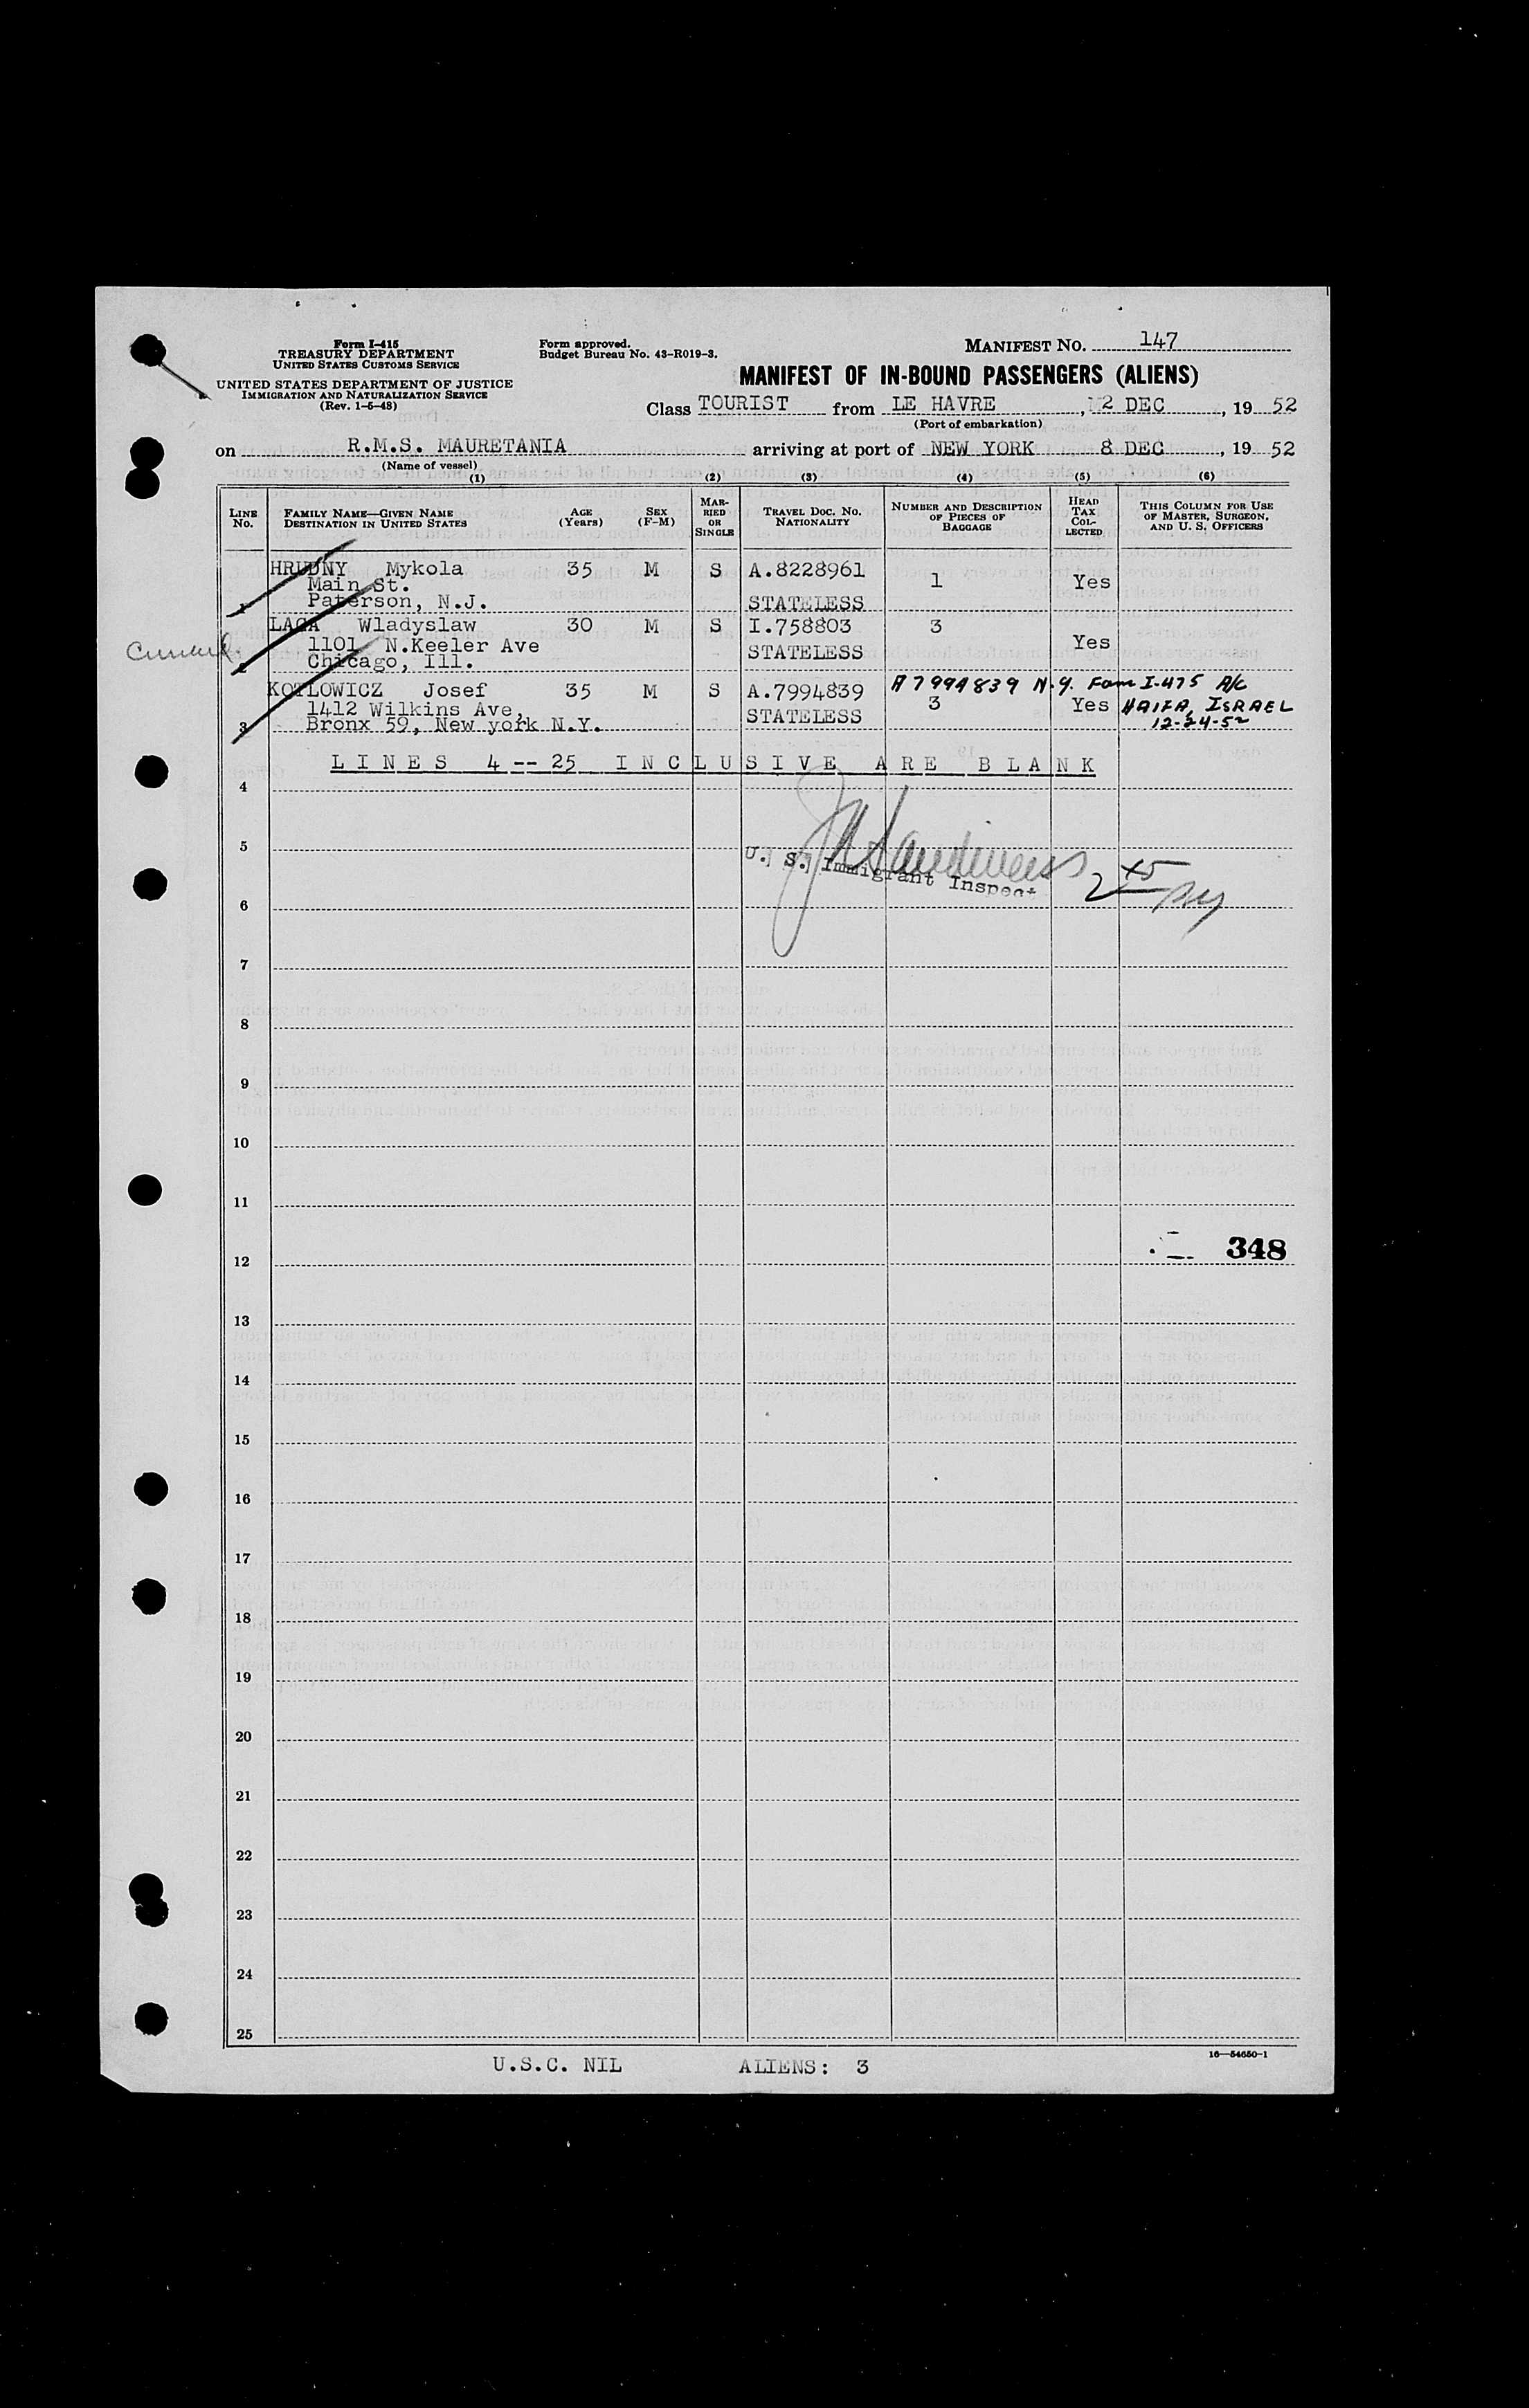 Form I-415
TREASURY DEPARTMENT
UNITED STATES CUSTOMS SERVICE
UNITED STATES DEPARTMENT OF JUSTICE
IMMIGRATION AND NATURALIZATION SERVICE
(Rev. 1-5-48)
Form approved.
Budget Bureau No. 43-R019-3.
MANIFEST NO. 147
MANIFEST OF IN-BOUND PASSENGERS (ALIENS)
Class TOURIST from LE HAVRE, 2 DEC, 19 52
(Port of embarkation)
on R.M.S. MAURETANIA arriving at port of NEW YORK 8 DEC, 19 52
(Name of vessel)
(1) (2) (3) (4) (5) (6)
LINE NO. FAMILY NAME—GIVEN NAME DESTINATION IN UNITED STATES AGE (Years) SEX (F-M) MARRIED OR SINGLE TRAVEL DOC. NO. NATIONALITY NUMBER AND DESCRIPTION OF PIECES OF BAGGAGE HEAD TAX COLLECTED THIS COLUMN FOR USE OF MASTER, SURGEON, AND U. S. OFFICERS
HRUDNY Mykola 35 M S A.8228961 1 Yes
Main St.
1 Paterson, N.J. STATELESS
LAGA Wladyslaw 30 M S I.758803 3
1101 N.Keeler Ave STATELESS Yes
2 Chicago, Ill.
KOTLOWICZ Josef 35 M S A.7994839 A7994839 N.Y. Form I-475 A/C
1412 Wilkins Ave, 3 Yes HAIFA, ISRAEL
3 Bronx 59, New york N.Y. STATELESS 12-24-52
LINES 4 -- 25 INCLUSIVE ARE BLANK
4
5
U. S. Immigrant Inspect
6
7
8
9
10
11
348
12
13
14
15
16
17
18
19
20
21
22
23
24
25
16—54650-1
U.S.C. NIL ALIENS: 3